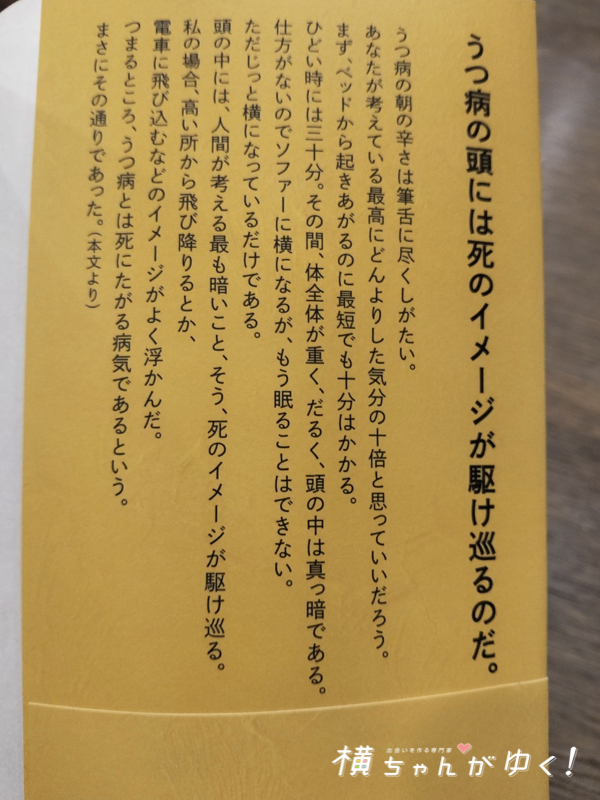 うつ病の頭には死のイメージが駆け巡るのだ。
うつ病の朝の辛さは筆舌に尽くしがたい。
あなたが考えている最高にどんよりした気分の十倍と思っていいだろう。
まず、ベッドから起きあがるのに最短でも十分はかかる。
ひどい時には三十分。その間、体全体が重く、だるく、頭の中は真っ暗である。
仕方がないのでソファーに横になるが、もう眠ることはできない。
ただじっと横になっているだけである。
頭の中には、人間が考える最も暗いこと、そう、死のイメージが駆け巡る。
私の場合、高い所から飛び降りるとか、
電車に飛び込むなどのイメージがよく浮かんだ。
つまるところ、うつ病とは死にたがる病気であるという。
まさにその通りであった。(本文より)
出会いを作る専門家
横ちゃんがゆく!